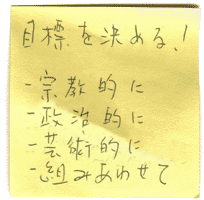 目標を決める!
-宗教的に
-政治的に
-芸術的に
-組みあわせて